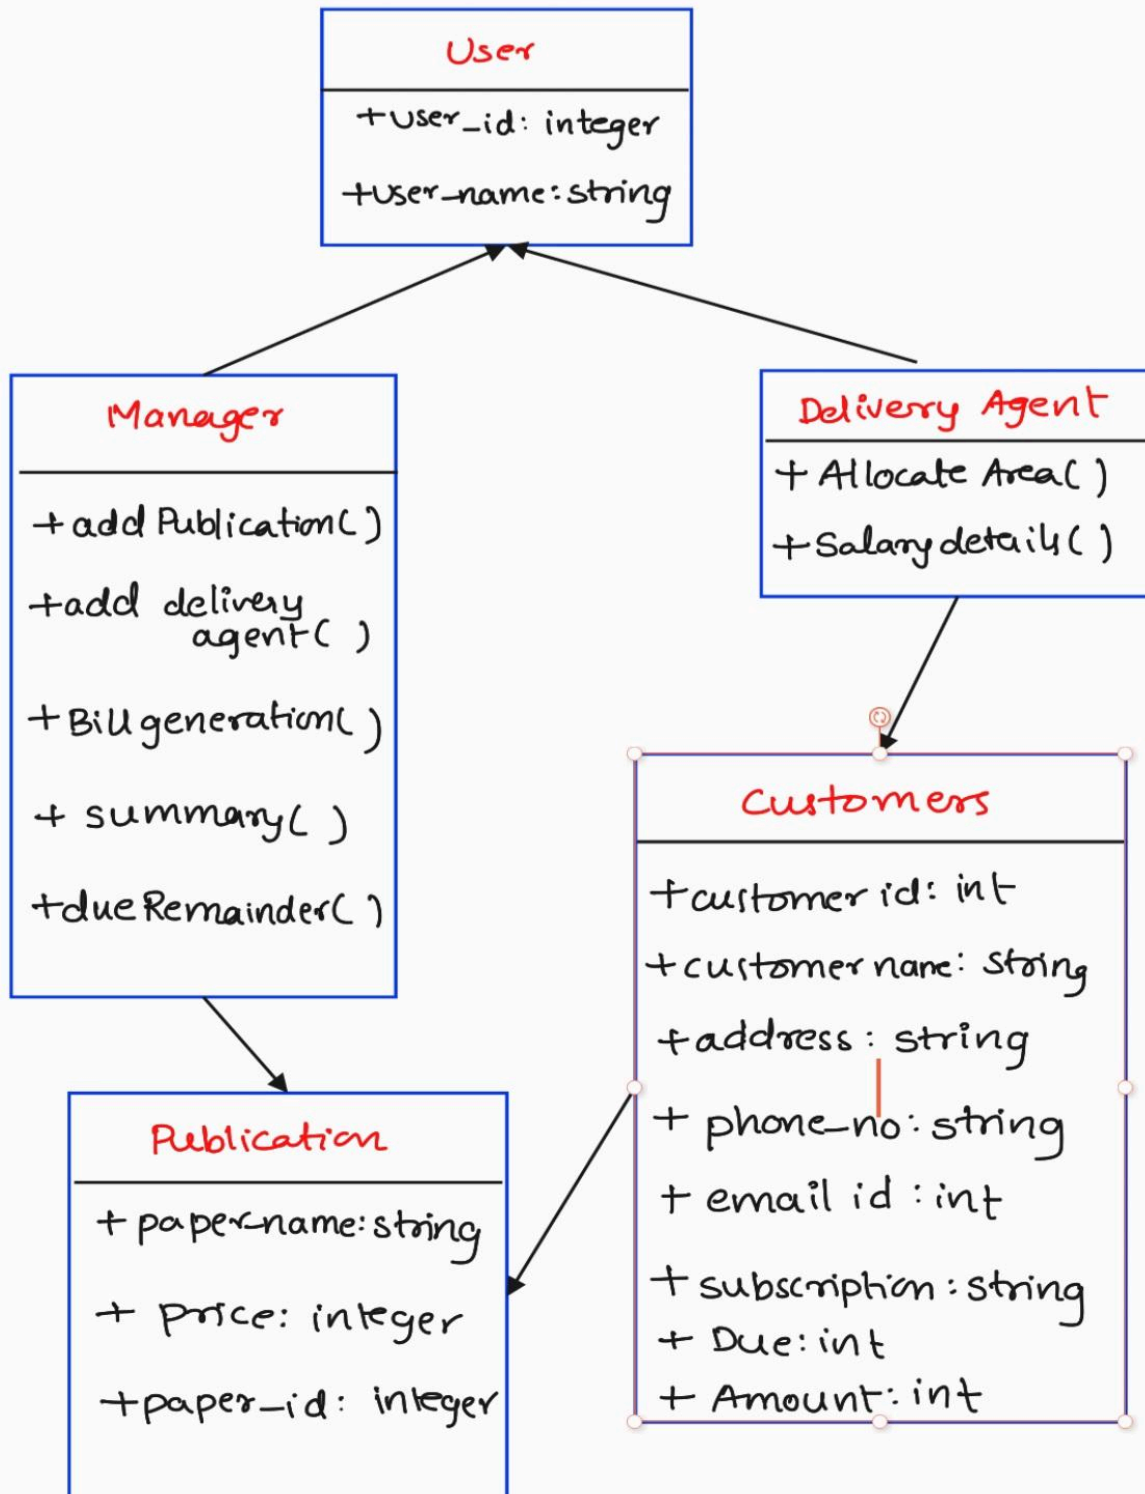 User
+user_id: integer
+user_name: string
Manager
+add Publication( )
+add delivery
agent( )
+ Bill generation( )
+ summary( )
+due Remainder( )
Delivery Agent
+ Allocate Area( )
+ Salary details( )
Customers
+customer id: int
+customer name: string
+address: string
+ phone_no: string
+ email id: int
+ subscription: string
+ Due: int
+ Amount: int
Publication
+ paper_name: string
+ price: integer
+paper_id: integer